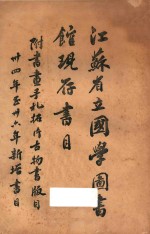 江蘇省立國學圖書
館現存書目
附書畫手札拓片古物書版目
卅四年至卅六年新增書目